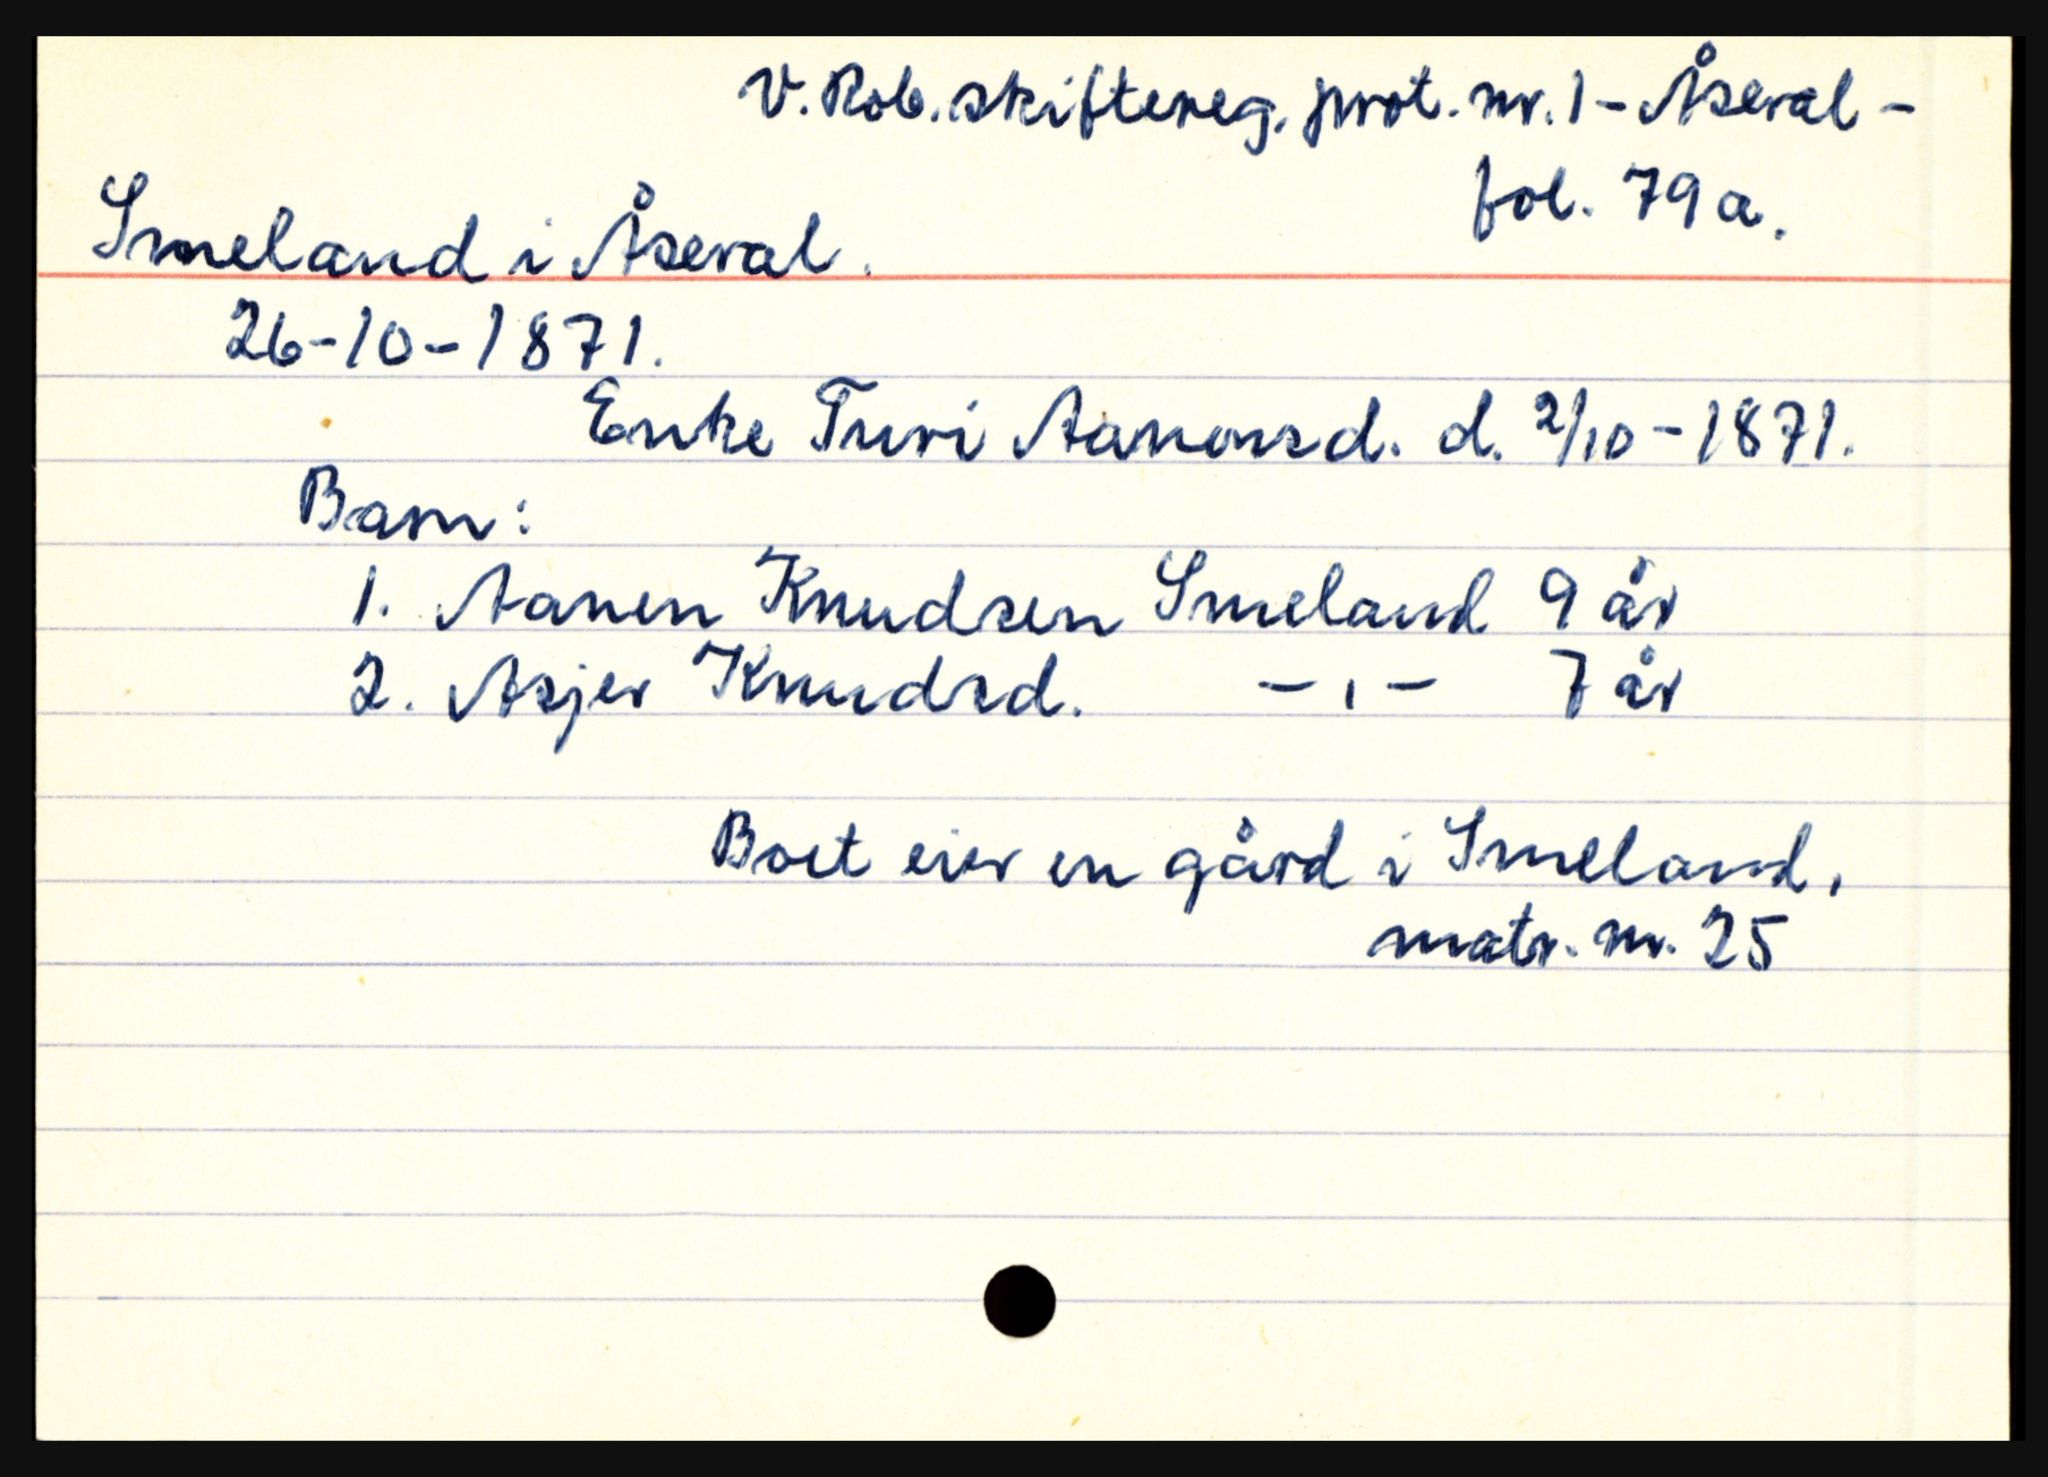 V. Rob. skiftereg. prot. nr. 1 - Åseral -
fol. 79a.
Smeland i Åseral.
26-10-1871.
Enke Turi Aanonsd. d. 2/10-1871.
Barn:
1. Aanen Knudsen Smeland 9 år
2. Asjer Knudsd. -,- 7 år
Boet eier en gård i Smeland,
matr. nr. 25